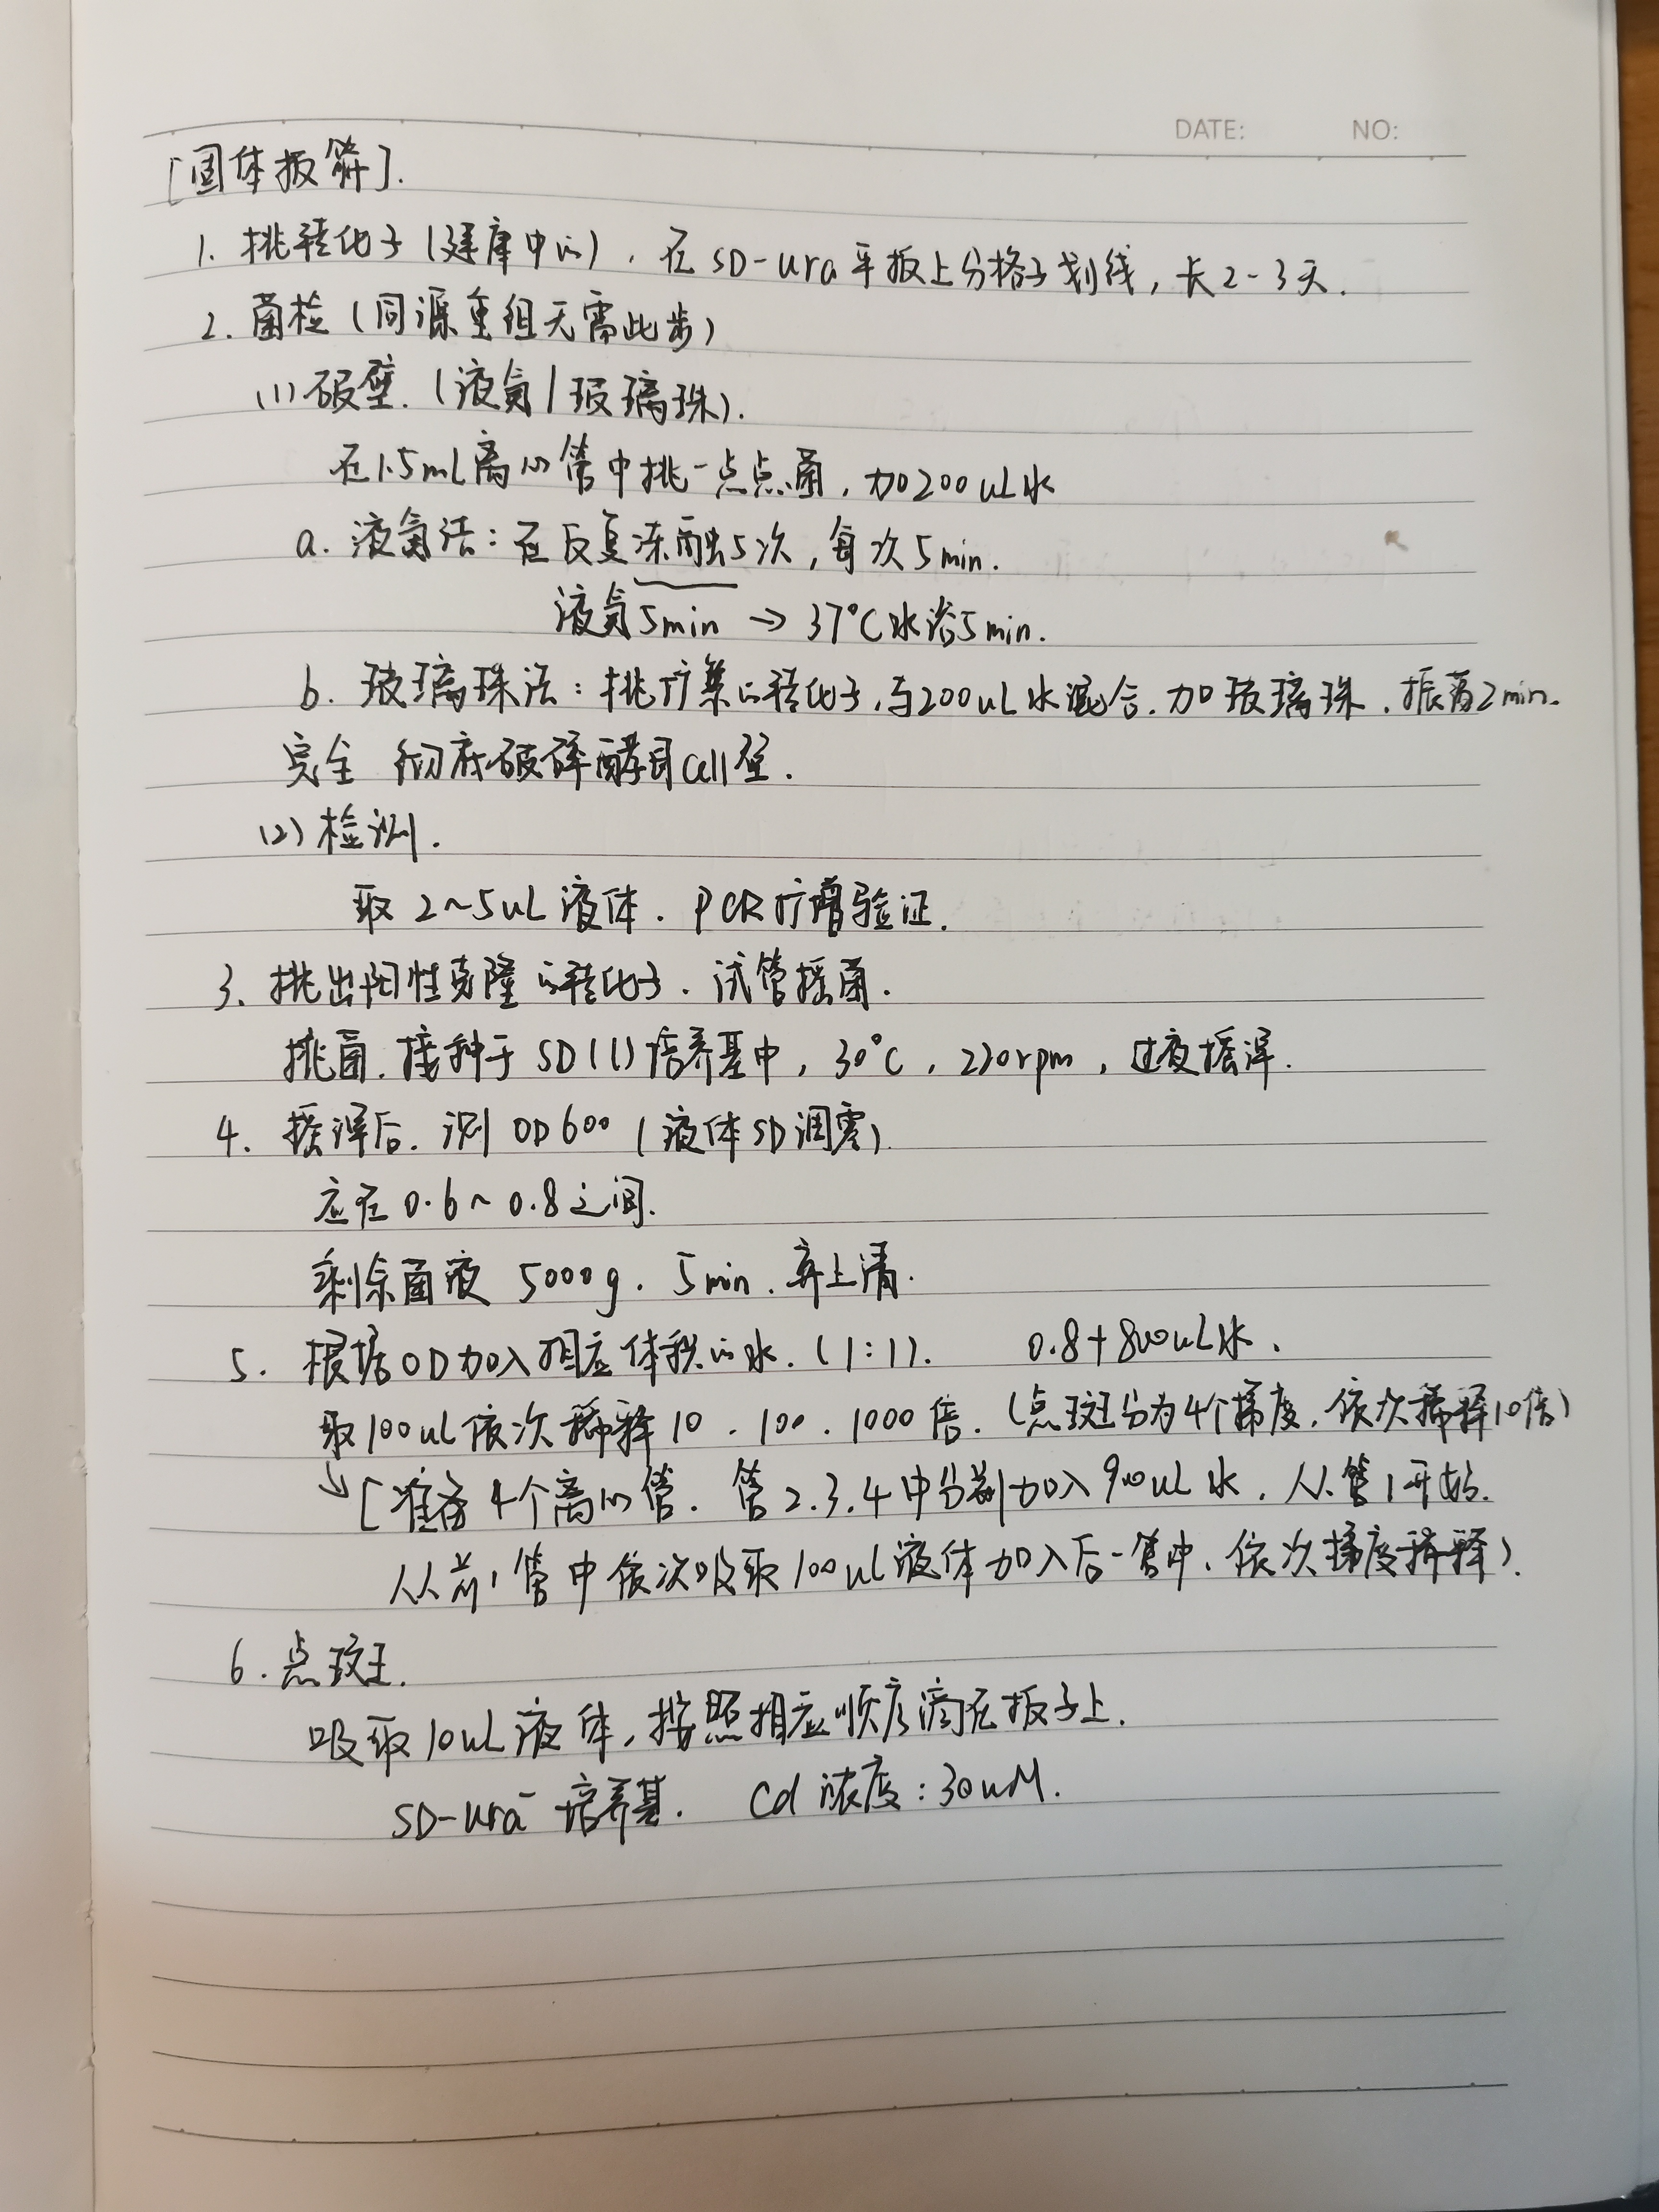 DATE: NO:
[固体板筛].
1. 挑转化子(健康中的), 在SD-ura平板上分格子划线, 长2-3天.
2. 菌检(同源重组无需此步)
(1)破壁. (液氮/玻璃珠).
在1.5mL离心管中挑一点点菌, 加200uL水
a. 液氮法: 在反复冻融5次, 每次5min.
液氮5min → 37°C水浴5min.
b. 玻璃珠法: 挑的转化子, 与200uL水混合. 加玻璃珠. 振荡2min.
完全 彻底破碎酵母cell壁.
(2)检测.
取2~5uL液体. PCR扩增验证.
3. 挑出阳性克隆的转化子. 试管摇菌.
挑菌. 接种于SD(l)培养基中, 30°C, 220rpm, 过夜摇浑.
4. 摇浑后. 测OD600(液体SD调零)
应在0.6~0.8之间.
剩余菌液 5000g. 5min. 弃上清.
5. 根据OD加入相应体积的水. (1:1). 0.8+800uL水.
取100uL依次稀释10. 100. 1000倍. (点斑分为4个梯度. 依次稀释10倍)
↓[准备4个离心管. 管2.3.4中分别加入900uL水. 从管1开始.
从前1管中依次吸取100uL液体加入后一管中. 依次梯度稀释).
6. 点斑.
吸取10uL液体, 按照相应顺序滴在板子上.
SD-ura⁻培养基. Cd浓度: 30uM.